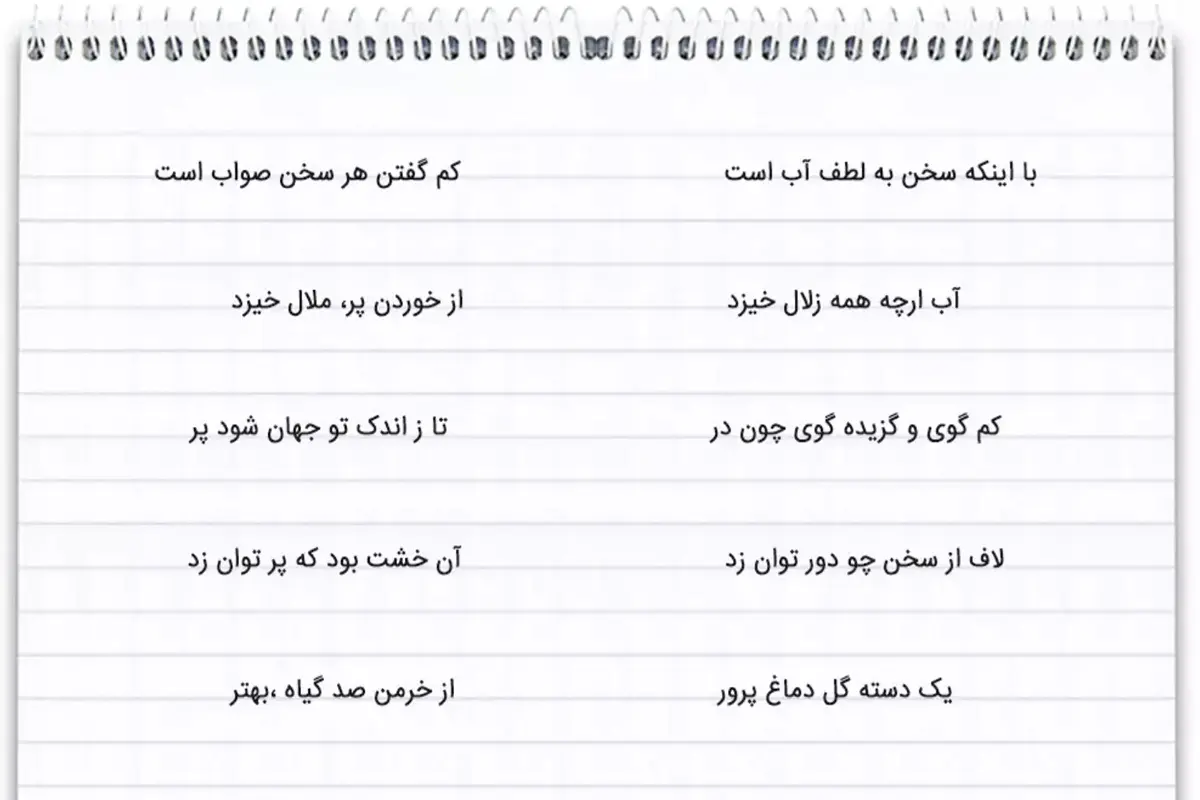 با اینکه سخن به لطف آب است کم گفتن هر سخن صواب است
آب ارچه همه زلال خیزد از خوردن پر، ملال خیزد
کم گوی و گزیده گوی چون در تا ز اندک تو جهان شود پر
لاف از سخن چو دور توان زد آن خشت بود که پر توان زد
یک دسته گل دماغ پرور از خرمن صد گیاه ،بهتر